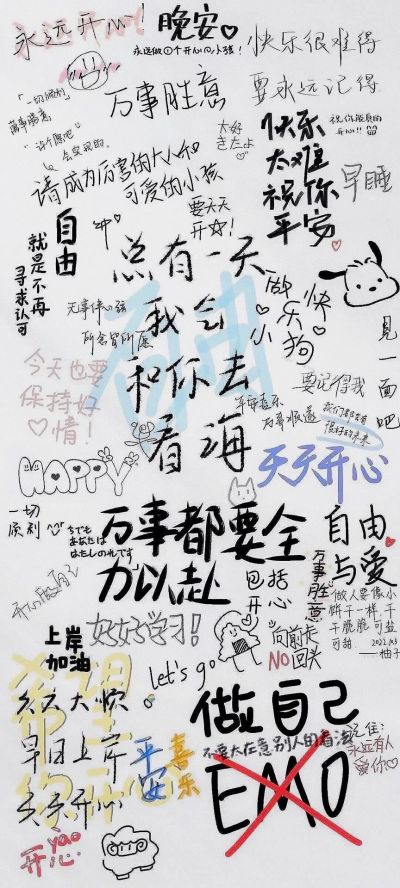 永远开心!
晚安♡
永远做1个开心的小孩!
快乐很难得
要永远记得
「一切顺利」
万事胜意
万事胜意
"许个愿吧"
会实现的。
太好
きたよ
快乐
太难
祝你
平安
早睡
请成为厉害的大人和
可爱的小孩
要天天
开☆!
自由
就是不再
寻求认可
冲♡
总有一天
我会
和你去
看海
自由
做
快
乐
小
狗
見一面吧
无事绊心弦
所念皆所愿
要记得我
今天也要
保持好
♡情!
平安喜乐
万事顺遂
我们都会有
很好的未来
天天开心
HAPPY
一切
顺利
万事都要全
力以赴
自由
与爱
包括
开
心
万事胜意
做人要像小
饼干一样,干
干脆脆,可盐
可甜
——柚子
好好学习!
上岸
加油
向前走
NO回头
let's go
希望
天天大快
早日上岸
天天开心
平安
喜乐
做自己
不要太在意别人的看法
EMO
记住:
永远有人
爱你♡
yào
开心